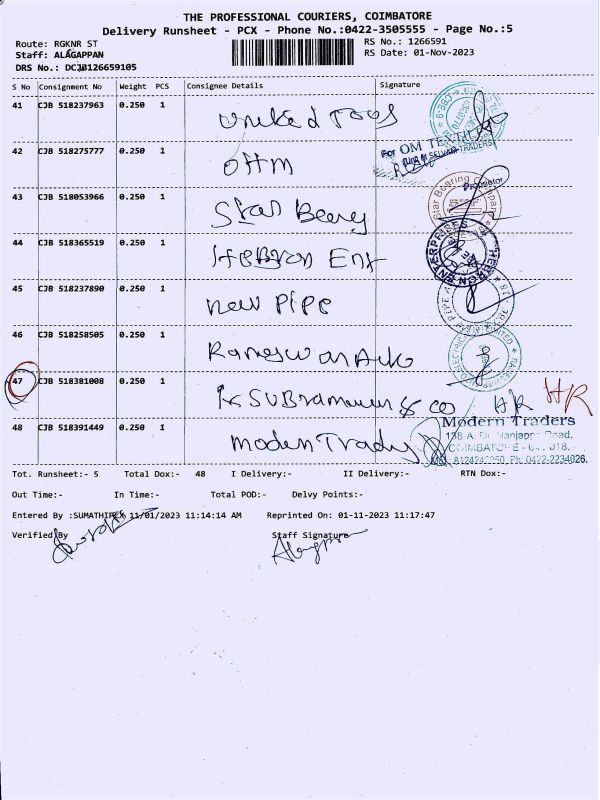 THE PROFESSIONAL COURIERS, COIMBATORE
Delivery Runsheet - PCX - Phone No.:0422-3505555 - Page No.:5
Route: RGKNR ST
RS No.: 1266591
Staff: ALAGAPPAN
RS Date: 01-Nov-2023
DRS No.: DCJB126659105
S No Consignment No Weight PCS Consignee Details Signature
41 CJB 518237963 0.250 1 United Tools
42 CJB 518275777 0.250 1 OHM
For OM TEXTILE
Proprietor
43 CJB 518053966 0.250 1 Star Bearing
Star Bearing Company
44 CJB 518365519 0.250 1 HEBron Ent
HEBRON ENTERPRISES
45 CJB 518237890 0.250 1 new PIPE
46 CJB 518258505 0.250 1 Rameswar
47 CJB 518381008 0.250 1 K SUBramanian & co HR HR
48 CJB 518391449 0.250 1 Modern Traders
Modern Traders
COIMBATORE - 641 018.
Ph: 0422-2234026.
Tot. Runsheet:- 5 Total Dox:- 48 I Delivery:- II Delivery:- RTN Dox:-
Out Time:- In Time:- Total POD:- Delvy Points:-
Entered By :SUMATHIPCX 11/01/2023 11:14:14 AM Reprinted On: 01-11-2023 11:17:47
Verified By Staff Signature